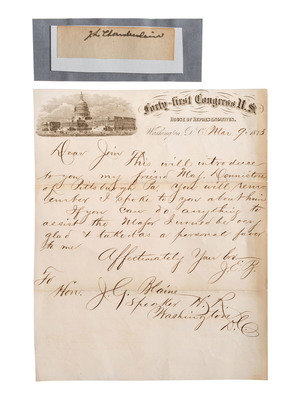 J L Chamberlain
Forty-first Congress U.S.
House of Representatives,
Washington, D.C. Mar 9. 1873
Dear Jim
This will introduce
to you my friend Maj.
of Pittsburgh Pa. You will remem
ber I spoke to you about him
If you can do anything to
assist the Major I will be very
glad & take it as a personal favor
to me
Affectionately Your bro
J. E. B.
To
Hon. J. G. Blaine
Speaker H. R.
Washington
D.C.